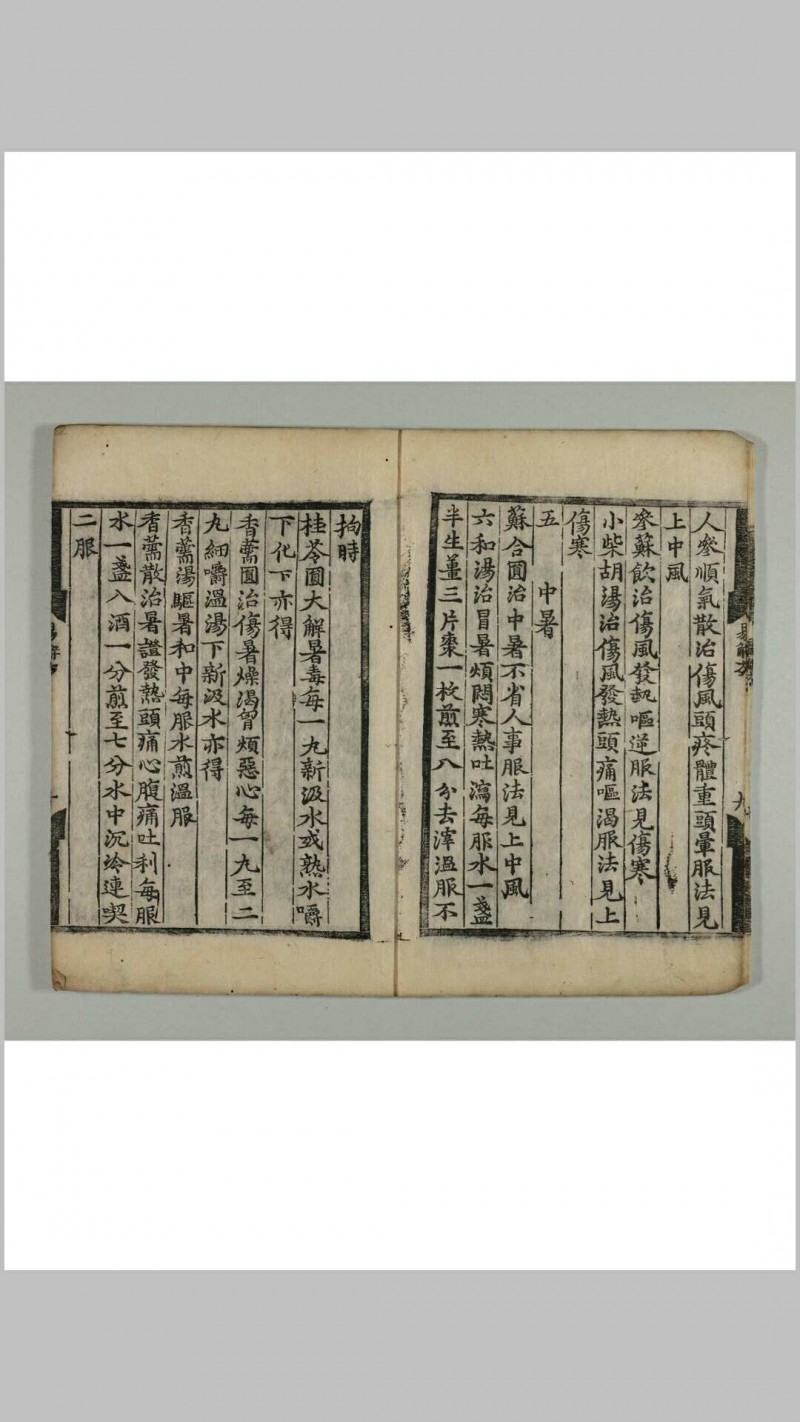 人參順氣散治傷風頭疼體重頭暈服法見
上中風
參蘇飲治傷風發熱嘔逆服法見傷寒
小柴胡湯治傷風發熱頭痛嘔渴服法見上
傷寒
五　中暑
蘇合圎治中暑不省人事服法見上中風
六和湯治冒暑煩悶寒熱吐瀉每服水一盞
半生薑三片棗一枚煎至八分去滓溫服不
拘時
桂苓圎大解暑毒每一丸新汲水或熟水嚼
下化下亦得
香薷圎治傷暑燥渴胷煩惡心每一丸至二
丸細嚼溫湯下新汲水亦得
香薷湯驅暑和中每服水煎溫服
香薷散治暑證發熱頭痛心腹痛吐利每服
水一盞入酒一分煎至七分水中沉冷連喫
二服